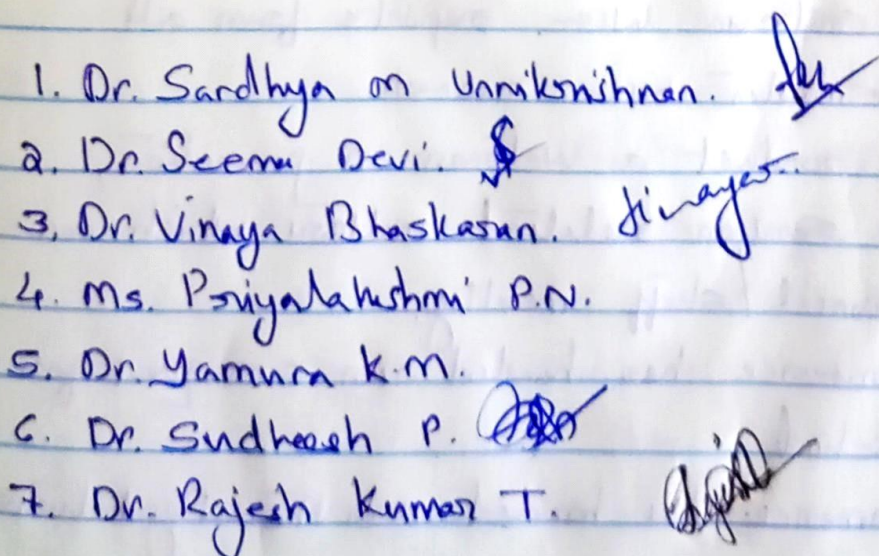 1. Dr. Sandhya M Unnikrishnan.
2. Dr. Seema Devi.
3. Dr. Vinaya Bhaskaran. Vinaya
4. Ms. Priyalakshmi P.N.
5. Dr. Yamuna K.M.
6. Dr. Sudheesh P.
7. Dr. Rajesh Kumar T.